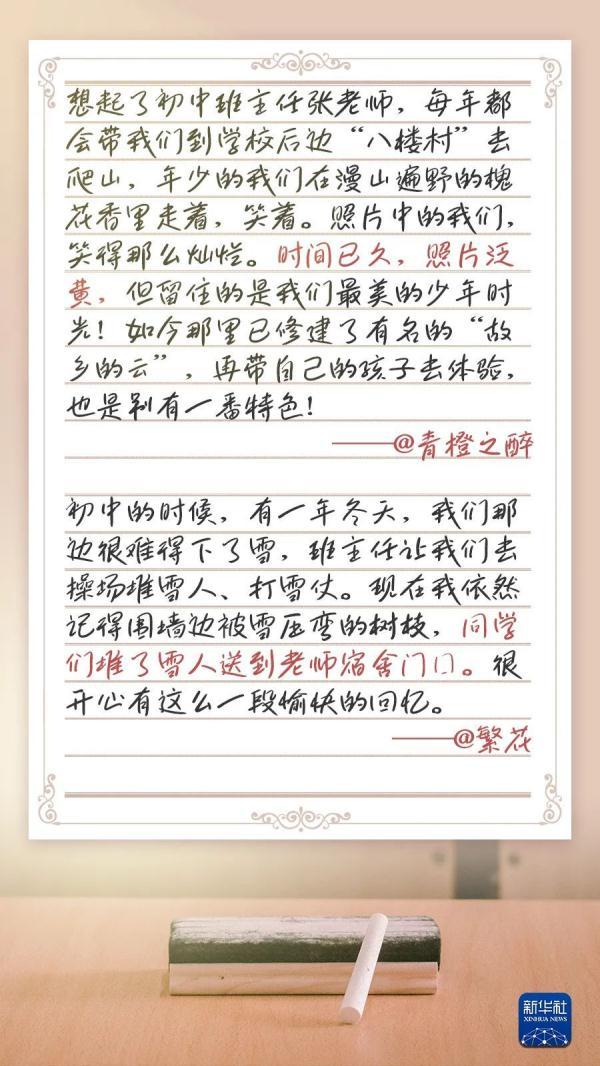 想起了初中班主任张老师，每年都
会带我们到学校后边“八楼村”去
爬山，年少的我们在漫山遍野的槐
花香里走着，笑着。照片中的我们，
笑得那么灿烂。时间已久，照片泛
黄，但留住的是我们最美的少年时
光！如今那里已修建了有名的“故
乡的云”，再带自己的孩子去体验，
也是别有一番特色！
——@青橙之醉
初中的时候，有一年冬天，我们那
边很难得下了雪，班主任让我们去
操场堆雪人、打雪仗。现在我依然
记得围墙边被雪压弯的树枝，同学
们堆了雪人送到老师宿舍门口。很
开心有这么一段愉快的回忆。
——@繁花
新华社
XINHUA NEWS